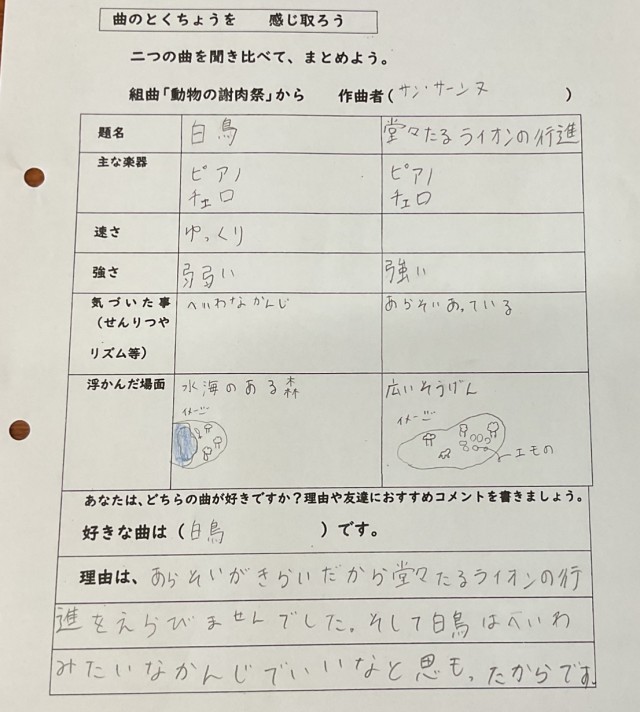 曲のとくちょうを 感じ取ろう
二つの曲を聞き比べて、まとめよう。
組曲「動物の謝肉祭」から 作曲者(サン・サーンヌ )
題名 白鳥 堂々たるライオンの行進
主な楽器 ピアノ ピアノ
チェロ チェロ
速さ ゆっくり
強さ 弱弱い 強い
気づいた事 へいわなかんじ あらそいあっている
(せんりつや
リズム等)
浮かんだ場面 水海のある森 広いそうげん
イメージ イメージ
エモの
あなたは、どちらの曲が好きですか?理由や友達におすすめコメントを書きましょう。
好きな曲は(白鳥 )です。
理由は、あらそいがきらいだから堂々たるライオンの行
進をえらびませんでした。そして白鳥はへいわ
みたいなかんじでいいなと思もったからです。